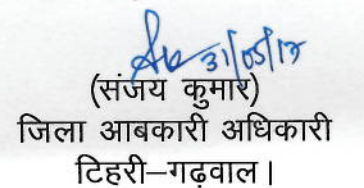 31/05/17
(संजय कुमार)
जिला आबकारी अधिकारी
टिहरी–गढ़वाल।